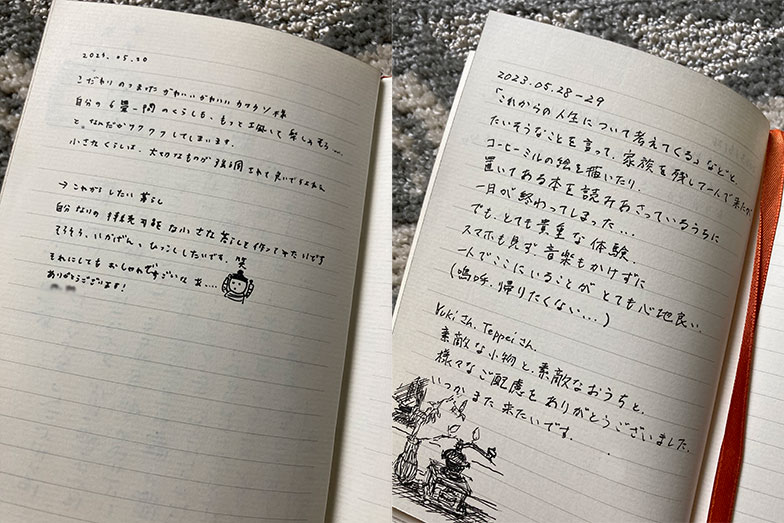 2023.05.20
こだわりのつまった かわいいかわいい カワウソ様
自分の6畳一間のくらしも、もっと工夫して楽しめそう…
と、なんだかワクワクしてしまいます。
小さなくらしは、大切なものが
→ これからしたい暮らし
自分なりの 持続可能な小さな暮らしを作ってみたいです
そろそろ、いいかげん、ひっこししたいです。
それにしても おしゃれですごいなあ…
ありがとうございます!
2023.05.28-29
「これからの人生について考えてくる」などと、
たいそうなことを言って、家族を残して一人で来たが
コーヒーミルの絵を描いたり、
置いてある本を読みあさっているうちに
一日が終わってしまった…
でも、とても貴重な体験。
スマホも見ず、音楽もかけずに
一人でここにいることが とても心地良い。
(嗚呼、帰りたくない…)
Yukiさん、Teppeiさん、
素敵な小物と、素敵なおうちと、
様々なご配慮をありがとうございました。
いつか また 来たいです。